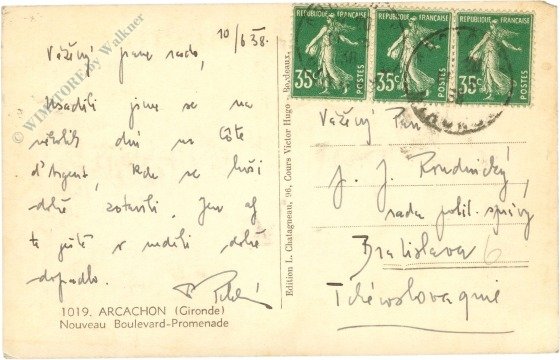 10/6 38.
Vážený pane rado,
Usadili jsme se na
několik dní na Côte
d'Argent, kde se hoši
dobře zotavili. Jen ať
to ještě v neděli dobře
dopadlo.
1019. ARCACHON (Gironde)
Nouveau Boulevard-Promenade
© WIMSTORE by Walkner
Edition L. Chatagneau, 96, Cours Victor Hugo - Bordeaux.
REPUBLIQUE FRANÇAISE
35c
POSTES
REPUBLIQUE FRANÇAISE
35c
POSTES
REPUBLIQUE FRANÇAISE
35c
POSTES
Vážený Pan
J. J. Rudnický,
rada polit. správy
Bratislava 6
Tchécoslovaquie